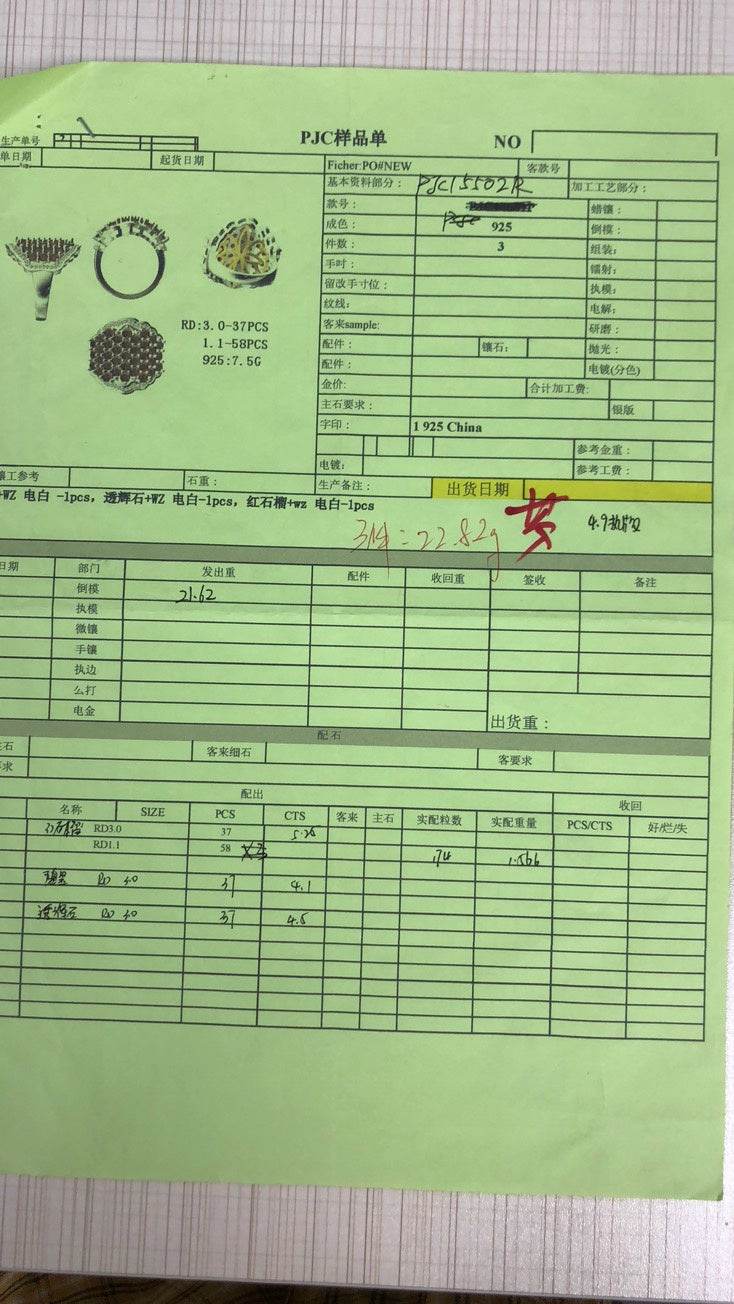 生产单号
PJC样品单 NO
单日期 起货日期 Ficher:PO#NEW 客款号
基本资料部分： PJC15502R 加工工艺部分：
款号： 蜡镶：
成色： 925 倒模：
件数： 3 组装：
手吋： 镭射：
留改手寸位： 执模：
纹线： 电解：
客来sample: 研磨：
配件： 镶石： 抛光：
配件： 电镀(分色)
金价: 合计加工费:
主石要求： 银版
字印： 1 925 China
RD:3.0-37PCS
1.1-58PCS
925:7.5G
参考金重：
电镀： 参考工费：
镶工参考 石重： 生产备注： 出货日期
+WZ 电白 -1pcs, 透辉石+WZ 电白-1pcs, 红石榴+wz 电白-1pcs
3件=22.82g
日期 部门 发出重 配件 收回重 签收 备注
倒模 21.62
执模
微镶
手镶
执边
么打
电金
出货重：
配石
客来细石 客要求
配出 收回
名称 SIZE PCS CTS 客来 主石 实配粒数 实配重量 PCS/CTS 好/烂/失
红石榴 RD3.0 37
RD1.1 58 x3 174 1.566
RD 3.0 37 4.1
透辉石 RD 3.0 37 4.5